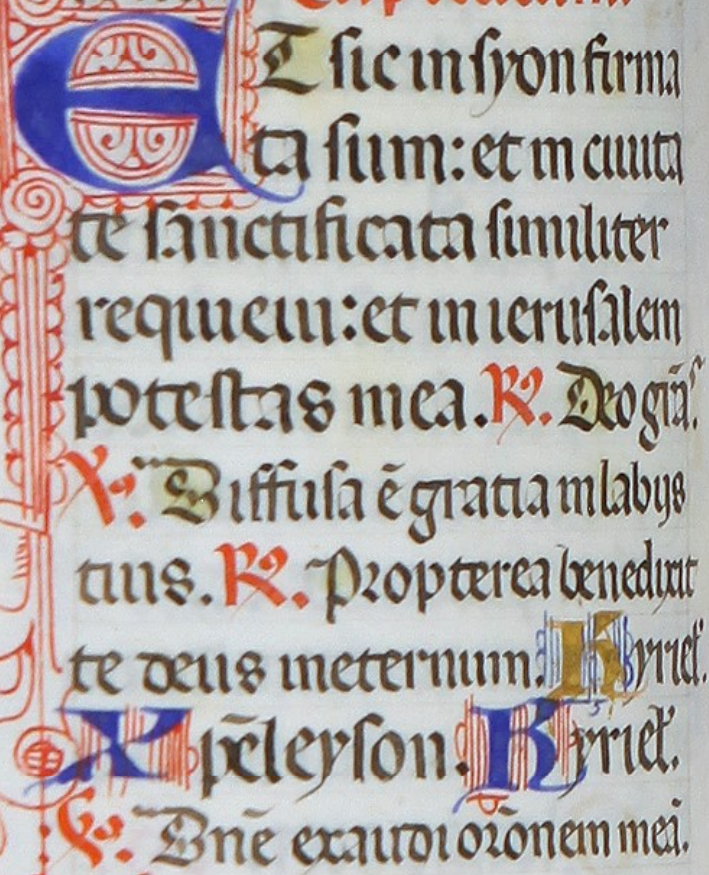 ET sic in syon firma
ta sum: et in ciuita
te sanctificata similiter
requieui: et in ierusalem
potestas mea. R̷. Deo grā⁹.
V̷. Diffusa ē gratia in labijs
tuis. R̷. Propterea benedixit
te deus in eternum. Kyriel̕.
Xpēleyson. Kyriel̕.
V̷. Dnē exaudi orōnem meā.